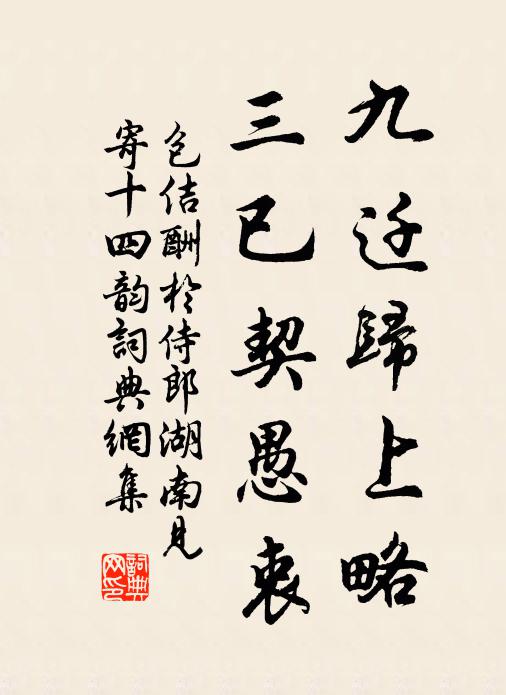 九迁歸上略
三已契愚衷
包佶酬於侍郎湖南見
寄十四韵詞典網集
詞典
网印